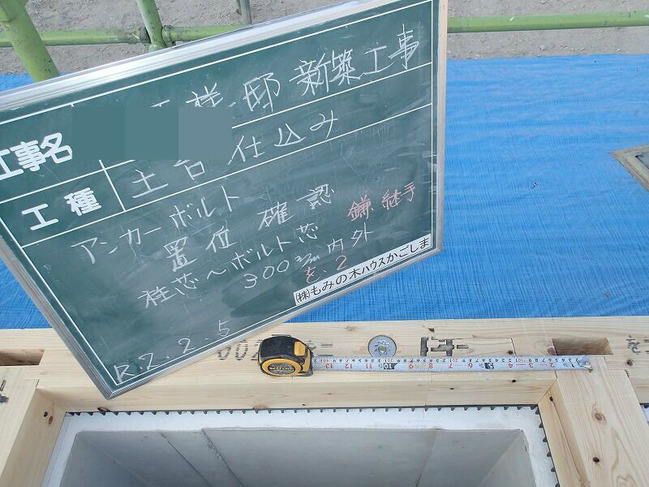 工事名 様邸 新築工事
工種 土台 仕込み
アンカーボルト
位置 確認
柱芯～ボルト芯 鎌継手
300㎜内外
を.2
R2.2.5
㈱もみの木ハウスかごしま